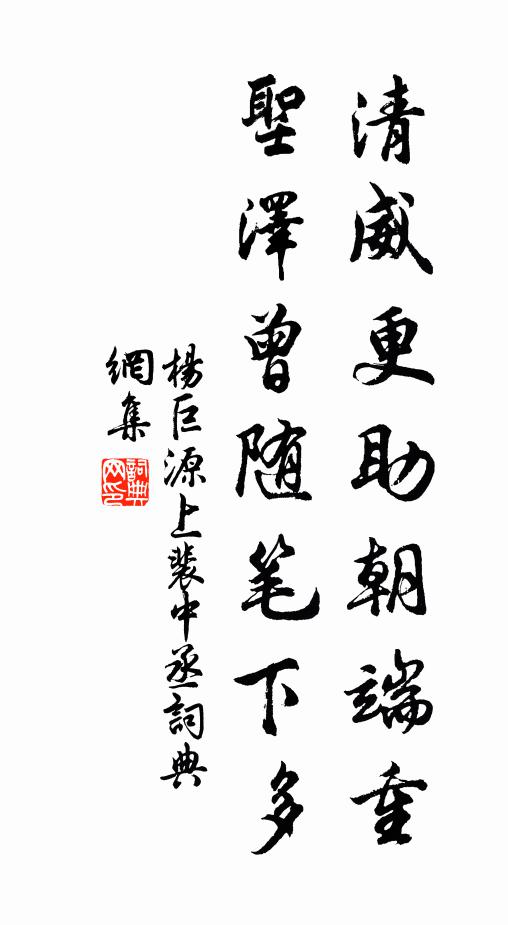 清威更助朝端重
聖澤曾随笔下多
楊巨源上裴中丞詞典
網集
詞典
网印